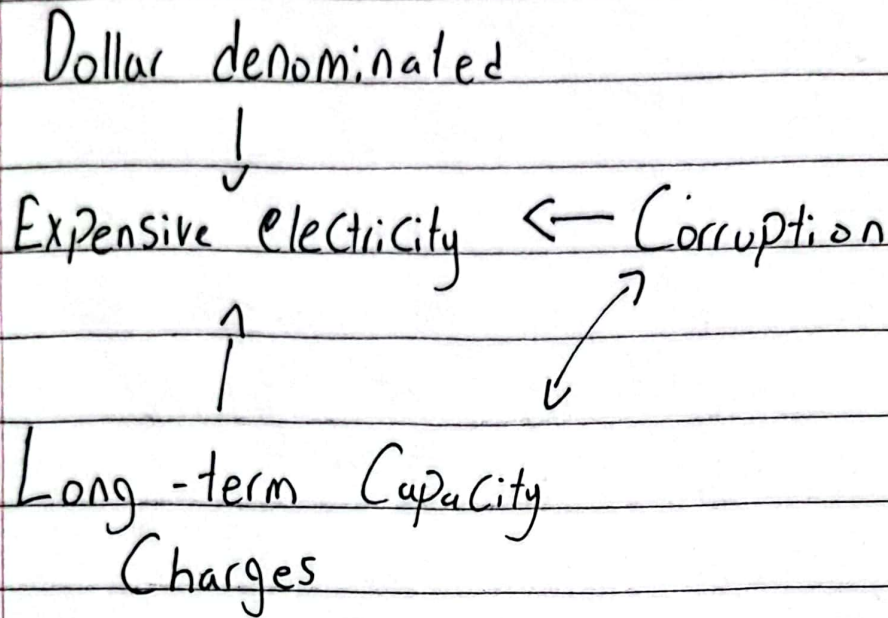 Dollar denominated
Expensive electricity ← Corruption
Long-term Capacity
Charges